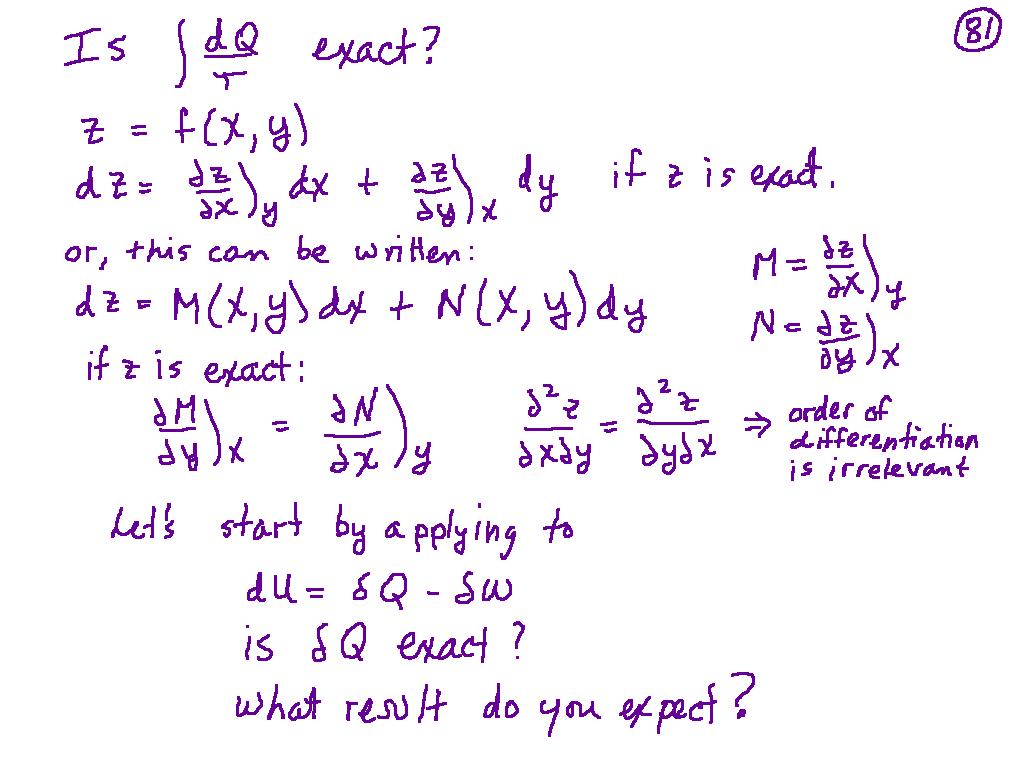 Is ∫ dQ/T exact?
81
z = f(x, y)
dz = ∂z/∂x)y dx + ∂z/∂y)x dy if z is exact.
or, this can be written:
dz = M(x,y) dx + N(x, y) dy
M = ∂z/∂x)y
N = ∂z/∂y)x
if z is exact:
∂M/∂y)x = ∂N/∂x)y ∂²z/∂x∂y = ∂²z/∂y∂x ⇒ order of
differentiation
is irrelevant
Let's start by applying to
dU = δQ - δW
is δQ exact?
what result do you expect?